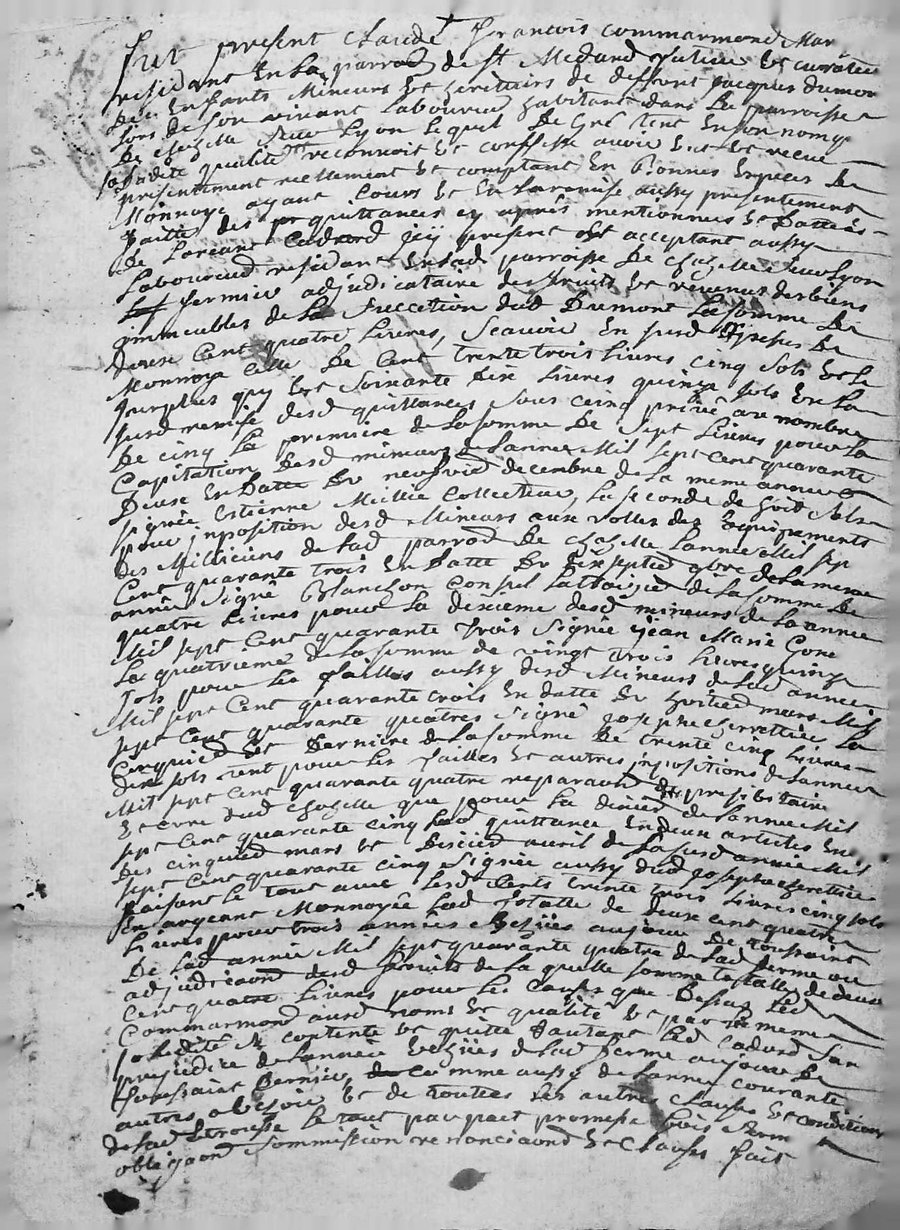 Fut present Claude François Commarmond Mar
residant en la parroē de St Medard tuteur et curateur
des enfants mineurs et heritiers de deffunt Jacques Dumon
lors de son vivant laboureur habitant dans la parroisse
de Chazelle sur Lyon lequel de gré tent en son nom q
sa dite qualité reconnoit et confesse avoir eut et receu
presentement reellement et comptant en bonnes especes de
Monnoye ayant cours et en la remise aussy presentement
faitte des quittances cy après mentionnees et dattées
de Laurant Cadord icy present et acceptant aussy
Laboureur residant en lad parroisse de Chazelle sur Lyon
fermier adjudicataire des fruits et revenus des biens
immeubles de la succetion dud Dumont la somme de
deuse cent quatre livres, scavoir en susd espeses de
Monnoye celle de cent trente trois livres cinq sols et le
surplus quy est soixante dix livres quinze sols en la
susd remise desd quittances sous cing privé au nombre
de cinq la premiere de la somme de sept livres pour la
Capitation desd mineurs de l'année mil sept cent quarante
deuse en datte du neufvie decembre de la meme annee
signée Estienne Millie Collecteur, la seconde de huit sols
pour imposition desd Mineurs aux rolles des equipements
des Milliciens de lad parroē de Chazelle l'année mil sep
Cent quarante trois en datte du dix septie 9bre de la meme
année signé Blanchon Consul la troizie de la somme de
quatre livres pour la dixieme desd mineurs de la annee
Mil sept cent quarante trois signée Jean Marie Gone
La quatrieme de la somme de vingt trois livres quinze
sols pour les tailles aussy desd Mineurs de lad année
Mil sept cent quarante trois en datte du huitie mars Mil
sept cent quarante quatres signé Joseph la
cinquie et derniere de la somme de trente cinq livres
dix sols tent pour les tailles et autres impositions de l'année
Mil sept cent quarante quatre reparaōn presibitaire
et cure dud Chazelle que pour la de l'annee Mil
sept cent quarante cinq lad quittance en deux articles
des cinquie mars et avril de la susd année Mil
sept cent quarante cinq signée aussy dud Joseph
faisant le tout avec lesd cents trente trois livres cinq sols
en argent Monnoyée lad totalle de deux cent quatre
Livres pour trois années au jour de toussaint
De lad année Mil sept quarante quatre de lad ferme ou
adjudicaōn desd fruits de la quelle somme totalle de deux
cent quatre livres pour les causes que dessus led
Commarmond ausd noms et qualité et par le meme
sa dite se contente et quitte d'autant led Cadord san
prejudice de l'année de lad ferme au jour de
toussaint dernier, comme aussy de l'annee courante
autres a et de toutes les autres clauses et conditions
de lad le tout par pait promesse
obligaōn soummission renonciaōn et clauses fait